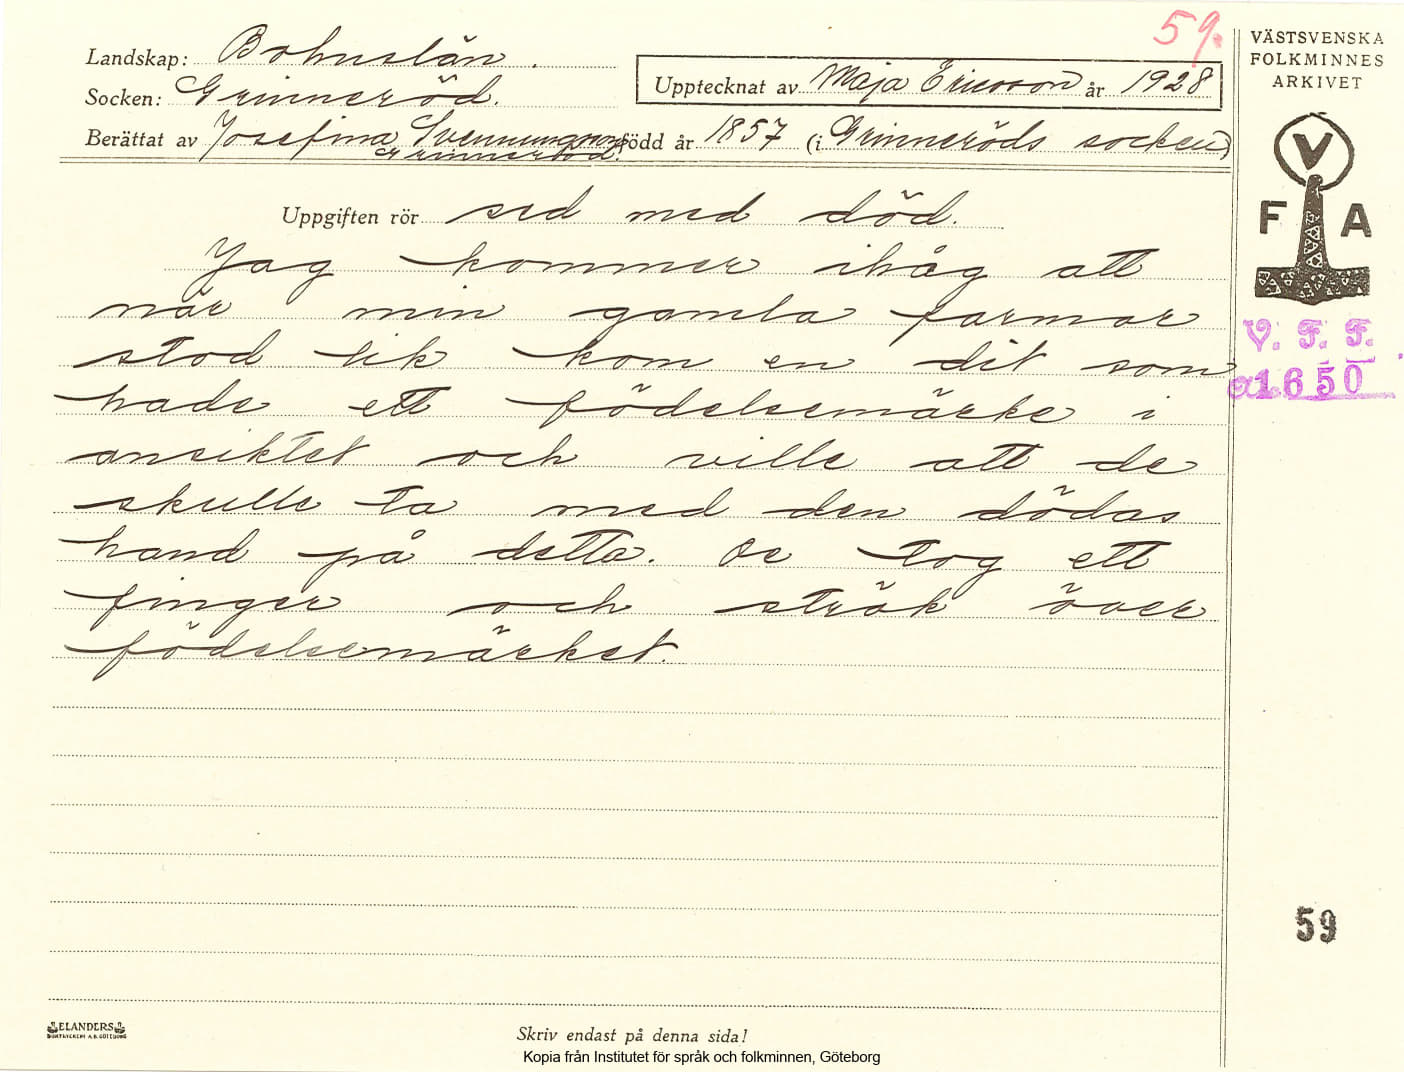 59.
Landskap: Bohuslän.
Socken: Grinneröd.
Upptecknat av Maja Ericsson år 1928
Berättat av Josefina Svenningsson född år 1857 (i Grinneröds socken)
Grinneröd.
Uppgiften rör sed med död.
Jag kommer ihåg att
när min gamla farmor
stod lik kom en dit som
hade ett födelsemärke i
ansiktet och ville att de
skulle ta med den dödas
hand på detta. De tog ett
finger och strök över
födelsemärket.
VÄSTSVENSKA
FOLKMINNES
ARKIVET
V
F A
V. F. F.
1650
59
ELANDERS
Skriv endast på denna sida!
Kopia från Institutet för språk och folkminnen, Göteborg